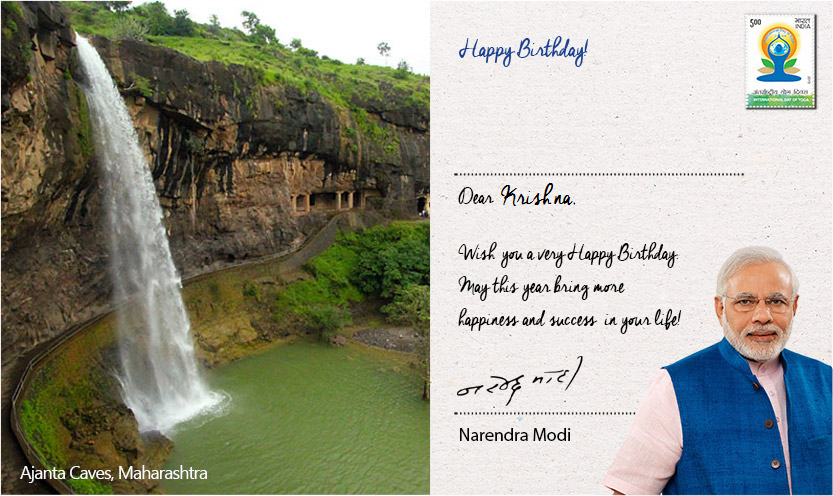 Happy Birthday!
5.00 भारत
INDIA
अंतर्राष्ट्रीय योग दिवस
INTERNATIONAL DAY OF YOGA
Dear Krishna,
Wish you a very Happy Birthday.
May this year bring more
happiness and success in your life!
नरेन्द्र मोदी
Narendra Modi
Ajanta Caves, Maharashtra